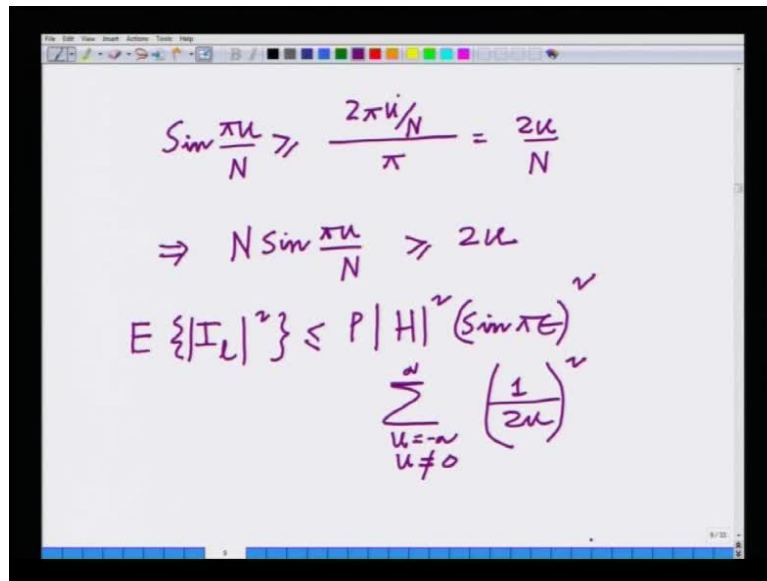 File Edit View Insert Actions Tools Help
Sin πu/N ≥ (2πu/N)/π = 2u/N
⇒ N Sin πu/N ≥ 2u
E {|I_l|²} ≤ P|H|² (Sin πε)²
∑_{u=-∞, u≠0}^{∞} (1/2u)²